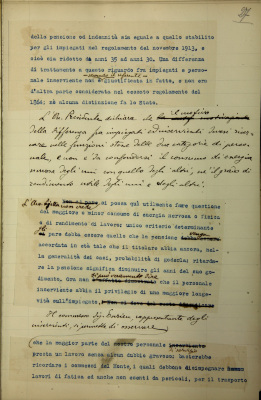 della pensione ed indennità sia eguale a quello stabilito
per gli impiegati nel regolamento del novembre 1913, e
cioè sia ridotto da anni 35 ad anni 30. Una differenza
di trattamento a questo riguardo fra impiegati e perso-
nale inserviente non è giustificata in fatto, e non era
d'altra parte considerata nel cessato regolamento del
nè alcuna distinzione fa lo Stato.
dichiara che il motivo
della differenza fra impiegati ed inservienti deve ricer-
care nelle funzioni stesse delle due categorie di perso-
nale, e non è da confondersi il consumo di energia
degli uni con quello degli altri, nè il grado di
rendimento utile degli uni e degli altri.
si possa qui utilmente fare questione
del maggiore o minor consumo di energia nervosa o fisica
e di rendimento di lavoro: unico criterio determinante
pare debba essere quello che la pensione venga
accordata in età tale che il titolare abbia ancora, nel-
la generalità dei casi, probabilità di goderla: ritarda-
re la pensione significa diminuire gli anni del suo go-
dimento. Ora non che il personale
inserviente abbia il privilegio di una maggiore longe-
vità sull'impiegato,
Il rappresentante degli
inservienti, si permette di osservare
che la maggior parte del personale
presta un lavoro senza alcun dubbio gravoso: basterebbe
ricordare i commessi del Dante, i quali debbono
lavori di fatica ed anche non esenti da pericoli, per il trasporto